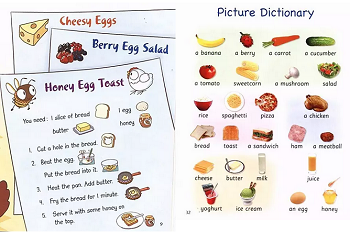 Cheesy Eggs
Berry Egg Salad
Honey Egg Toast
You need: 1 slice of bread 1 egg
butter honey
1. Cut a hole in the bread.
2. Beat the egg.
Put the bread into it.
3. Heat the pan. Add butter.
4. Fry the bread for 1 minute.
5. Serve it with some honey on
the top.
9
Picture Dictionary
a banana a berry a carrot a cucumber
a tomato sweetcorn a mushroom salad
rice spaghetti pizza a chicken
bread toast a sandwich ham a meatball
cheese butter milk juice
yoghurt ice cream an egg honey
32